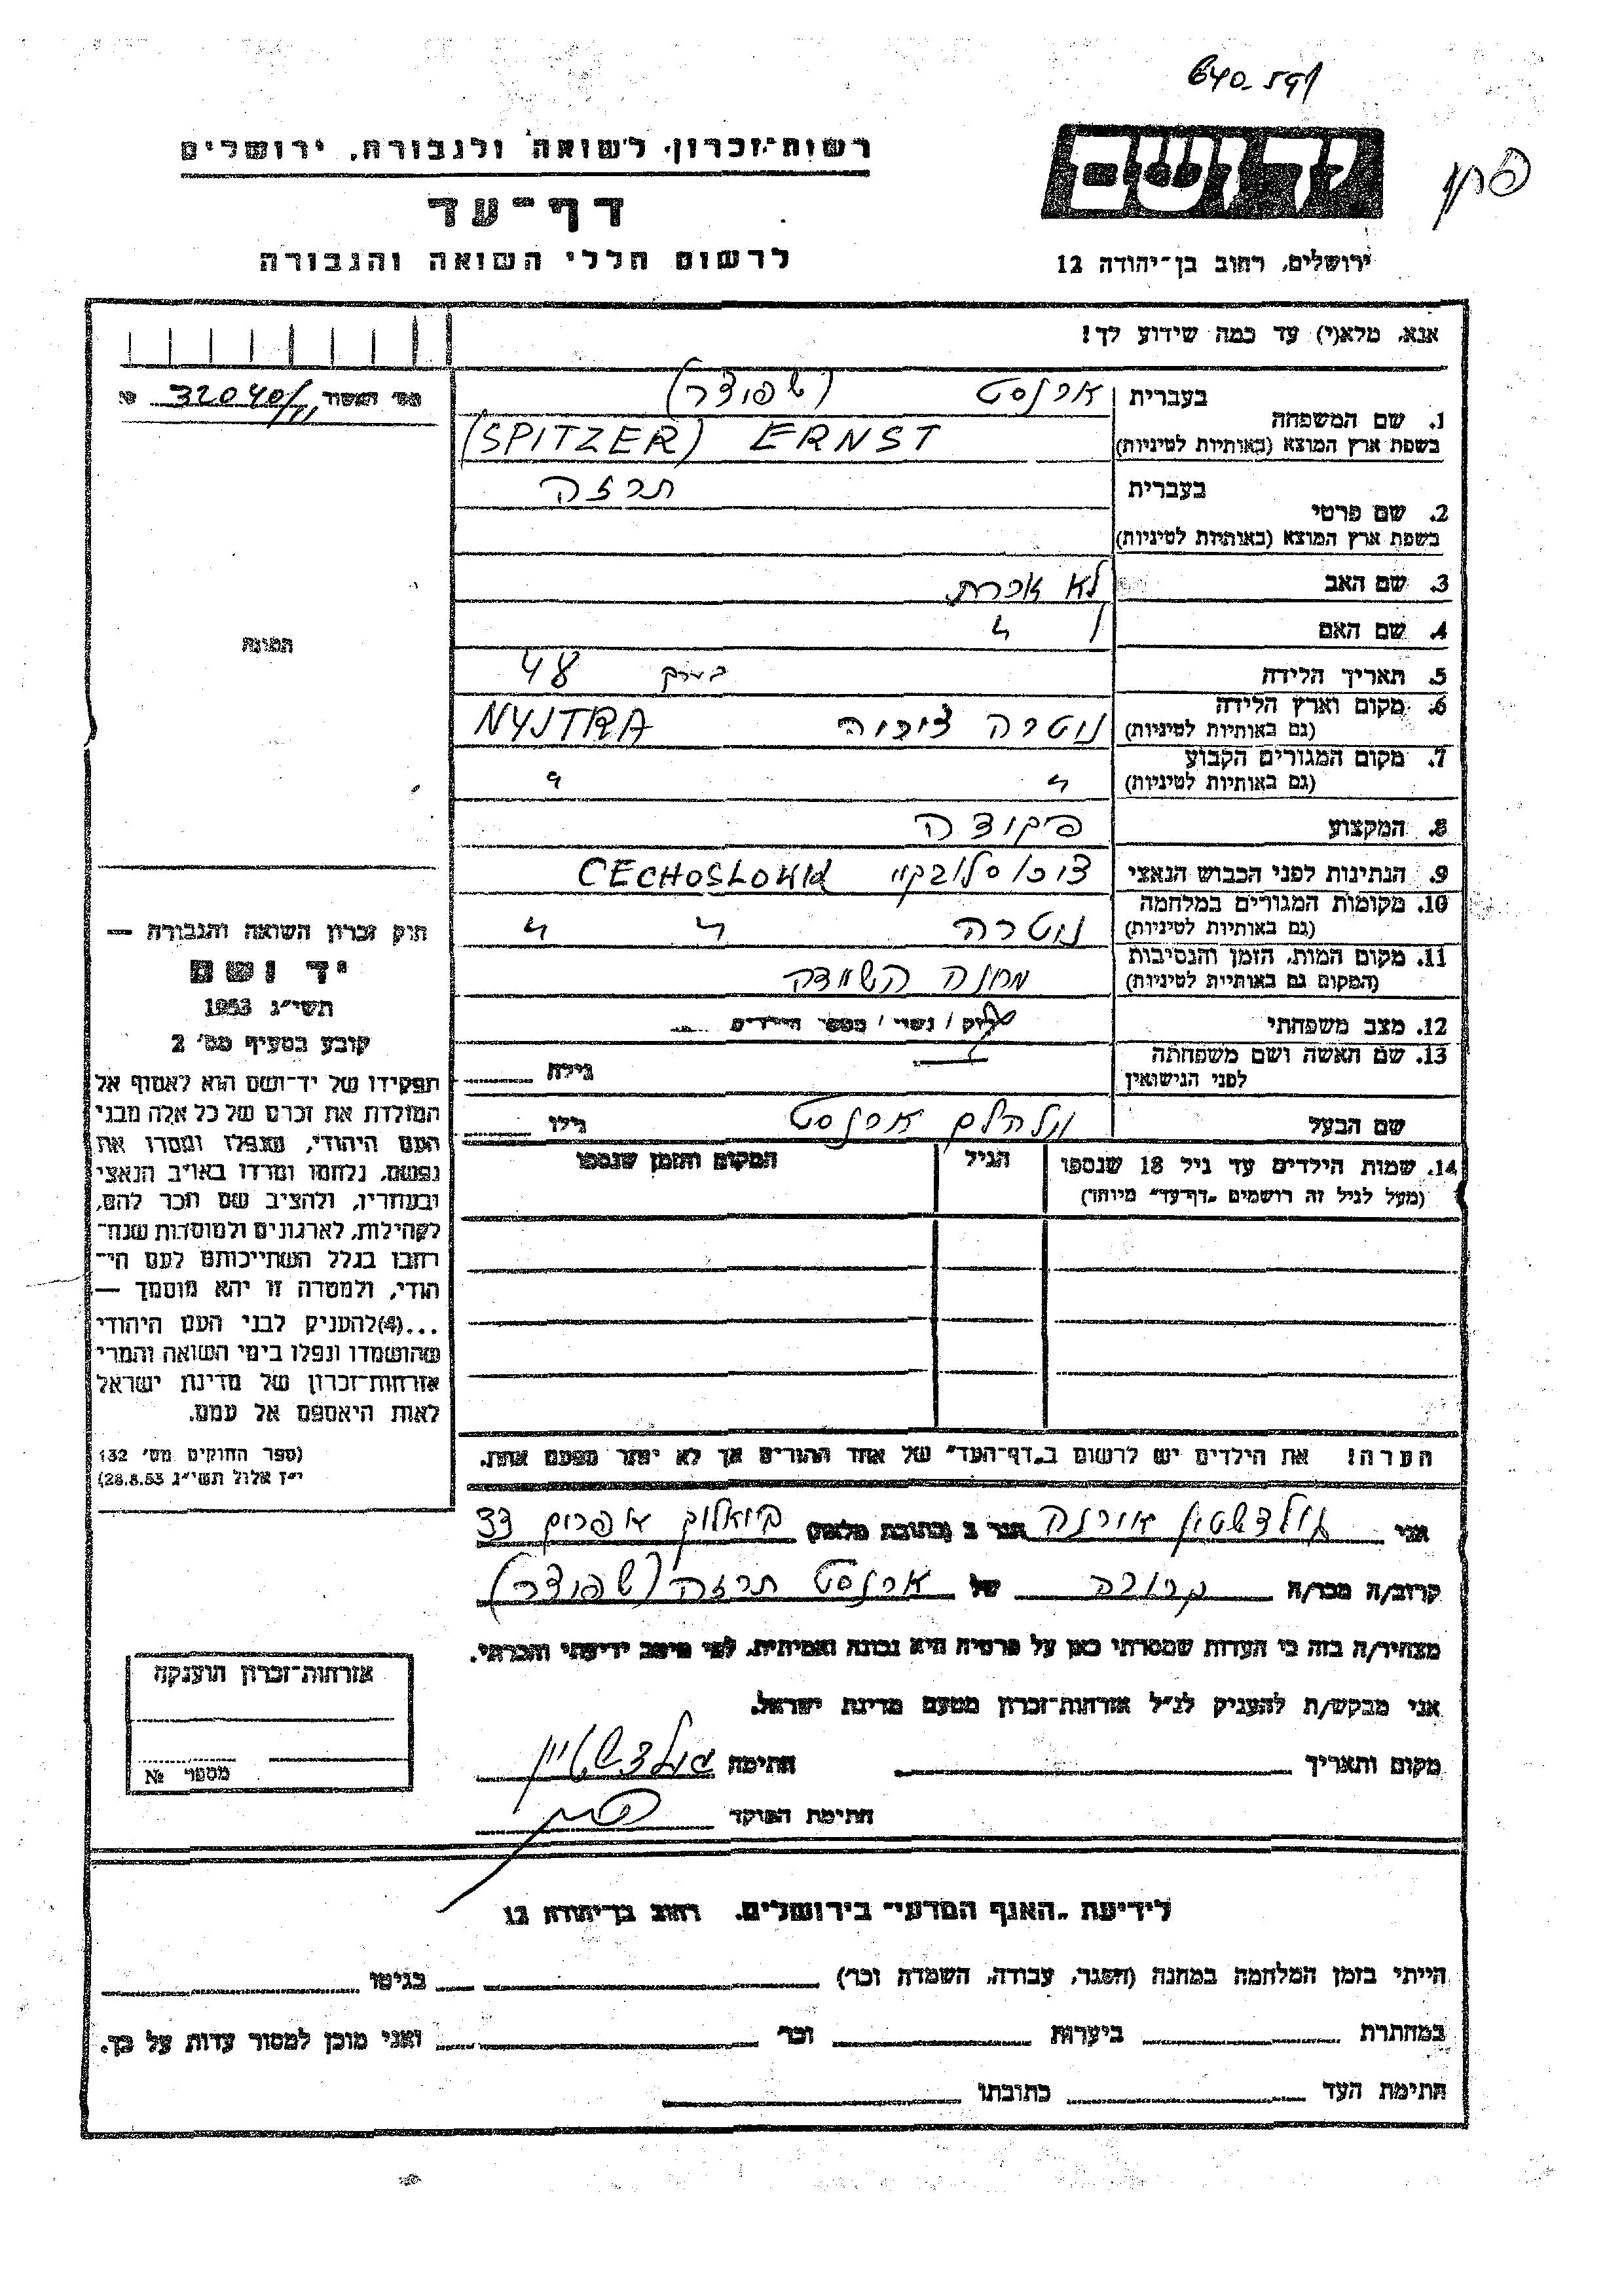 רשות-זכרון לשואה ולגבורה, ירושלים
דף-עד
לרשום חללי השואה והגבורה
יד ושם
ירושלים, רחוב בן-יהודה 12
אנא, מלא(י) עד כמה שידוע לך!
מס׳ 32040/
1. שם המשפחה
בעברית ארנסט (שפיצר)
בשפת ארץ המוצא (באותיות לטיניות) (SPITZER) ERNST
2. שם פרטי
בעברית תרזה
בשפת ארץ המוצא (באותיות לטיניות)
3. שם האב לא זכרת
4. שם האם
5. תאריך הלידה 48
6. מקום וארץ הלידה
(גם באותיות לטיניות) ניטרה NYJTRA
7. מקום המגורים הקבוע
(גם באותיות לטיניות) " "
8. המקצוע פקידה
9. הנתינות לפני הכבוש הנאצי CECHOSLOWKA
10. מקומות המגורים במלחמה
(גם באותיות לטיניות) ניטרה " "
11. מקום המות, הזמן והנסיבות
(המקום גם באותיות לטיניות) מחנה השמדה
12. מצב משפחתי רווק / נשוי / מספר הילדים
13. שם האשה ושם משפחתה
לפני הנישואין גילה
שם הבעל וילהלם ארנסט גילו
14. שמות הילדים עד גיל 18 שנספו הגיל המקום והזמן שנספו
(מעל לגיל זה רושמים „דף-עד״ מיוחד)
הערה! את הילדים יש לרשום ב„דף-העד״ של אחד ההורים אך לא יותר מפעם אחת.
התמונה
חוק זכרון השואה והגבורה —
יד ושם
תשי״ג 1953
קובע בסעיף מס׳ 2
תפקידו של יד-ושם הוא לאסוף אל
המולדת את זכרם של כל אלה מבני
העם היהודי, שנפלו ומסרו את
נפשם, נלחמו ומרדו באויב הנאצי
ובעוזריו, ולהציב שם וזכר להם,
לקהילות, לארגונים ולמוסדות שנח-
רבו בגלל השתייכותם לעם הי-
הודי, ולמטרה זו יהא מוסמך —
...(4)להעניק לבני העם היהודי
שהושמדו ונפלו בימי השואה והמרי
אזרחות-זכרון של מדינת ישראל
לאות היאספם אל עמם.
(ספר החוקים מס׳ 132
י״ז אלול תשי״ג 28.8.53)
אני גולדשטיין הגר ב (כתובת מלאה) 33
קרוב/ה מכר/ה קרובה של ארנסט תרזה (שפיצר)
מצהיר/ה בזה כי העדות שמסרתי כאן על פרטיה היא נכונה ואמיתית, לפי מיטב ידיעתי והכרתי.
אני מבקש/ת להעניק לנ״ל אזרחות-זכרון מטעם מדינת ישראל.
מקום ותאריך חתימה גולדשטיין
חתימת הפוקד
אזרחות-זכרון הוענקה
מספר №
לידיעת „האגף המדעי״ בירושלים, רחוב בן-יהודה 12
הייתי בזמן המלחמה במחנה (הסגר, עבודה, השמדה וכו׳) בגיטו
במחתרת ביערות וכו׳ ואני מוכן למסור עדות על כך.
חתימת העד כתובתו